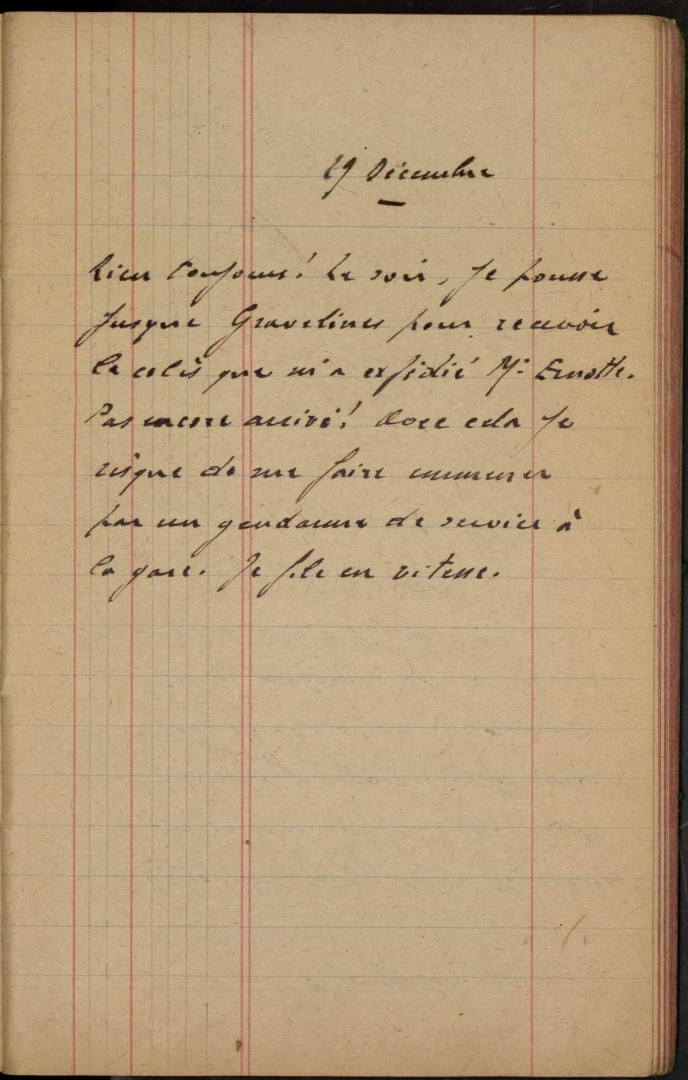 29 Décembre
Rien toujours! Le soir, je pousse
jusque Gravelines pour recevoir
le colis que m'a expédié Mr Ernotte.
Pas encore arrivé! Avec cela je
risque de me faire emmener
par un gendarme de service à
la gare. Je file en vitesse.